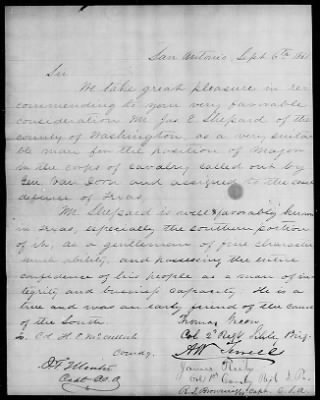 San Antonio, Sept 6th 1861
Sir
We take great pleasure in re-
commending to your very favorable
consideration Mr Jas E Shepard of the
county of Washington, as a very suita-
ble man for the position of Major
in the corps of cavalry called out by
Van Dorn and assigned to the
defence of Texas,
Mr. Shepard is well & favorably known
in Texas, especially the southern portion
of it, as a gentleman of fine character
much ability, and possessing the entire
confidence of his people as a man of in-
tegrity and business capacity. He is a
true and was an early friend of the cause
of the South.
Thomas Green
Col H. E. McCulloch
Col 2d Regt Sibley Brig.
Comdg.
James Reily
Capt
Col Cavalry Regt
Capt. C.S.A.